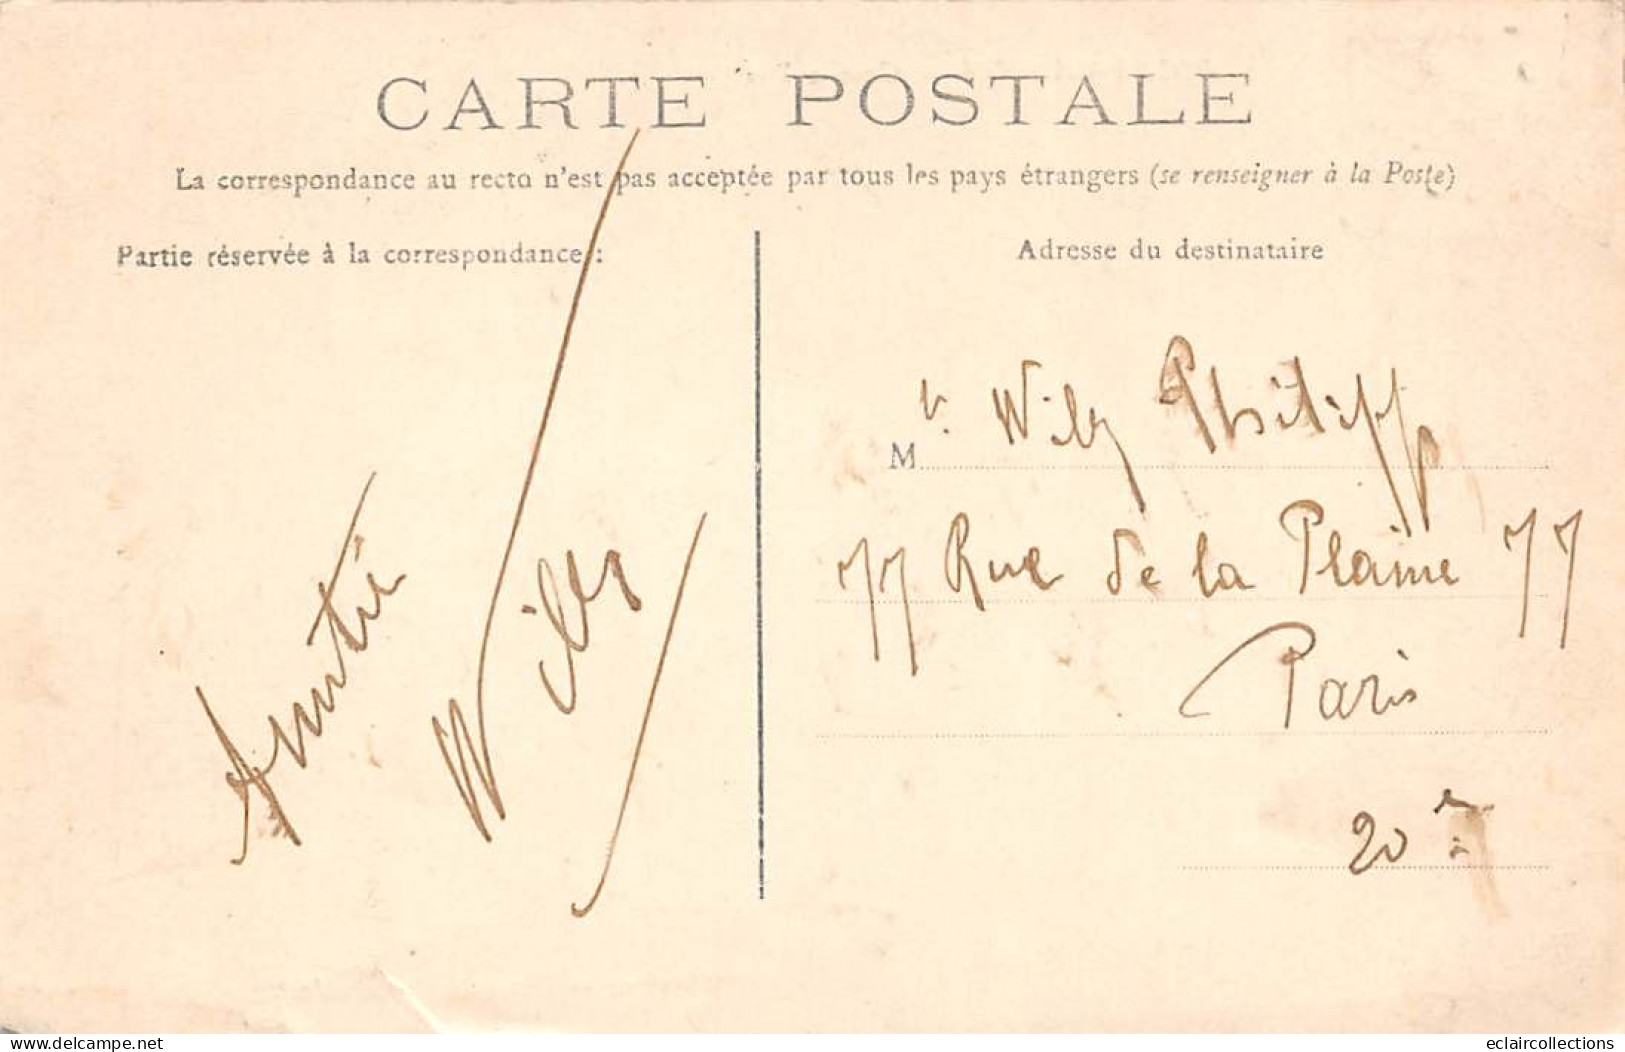 CARTE POSTALE
La correspondance au recto n'est pas acceptée par tous les pays étrangers (se renseigner à la Poste)
Partie réservée à la correspondance :
Adresse du destinataire
Amitié
Willy
Mr. Willy Philipp
77 Rue de la Plaine 77
Paris
20e
www.delcampe.net
eclaircollections